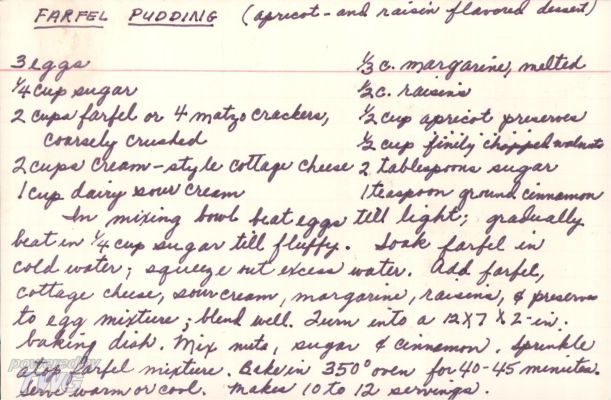 FARFEL PUDDING (apricot-and raisin flavored dessert)
3 eggs
1/4 cup sugar
2 cups farfel or 4 matzo crackers,
coarsely crushed
2 cups cream-style cottage cheese
1 cup dairy sour cream
1/3 c. margarine, melted
1/2 c. raisins
1/2 cup apricot preserves
1/2 cup finily chopped walnuts
2 tablespoons sugar
1 teaspoon ground cinnamon
In mixing bowl beat eggs till light; gradually
beat in 1/4 cup sugar till fluffy. Soak farfel in
cold water; squeeze out excess water. Add farfel,
cottage cheese, sour cream, margarine, raisins, & preserves
to egg mixture; blend well. Turn into a 12 X 7 X 2-in.
baking dish. Mix nuts, sugar & cinnamon. Sprinkle
atop farfel mixture. Bake in 350° oven for 40-45 minutes.
Serve warm or cool. Makes 10 to 12 servings.
powered by
TWG